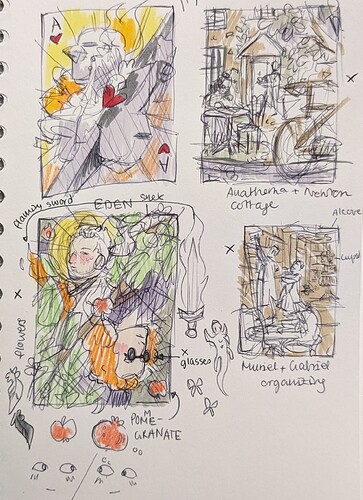 A
A
Anathema + Newton
cottage
Flaming sword
EDEN
Alcove
Cupid
x
x
x
flowers
x
glasses
Muriel + Gabriel
organizing
POME-
GRANATE